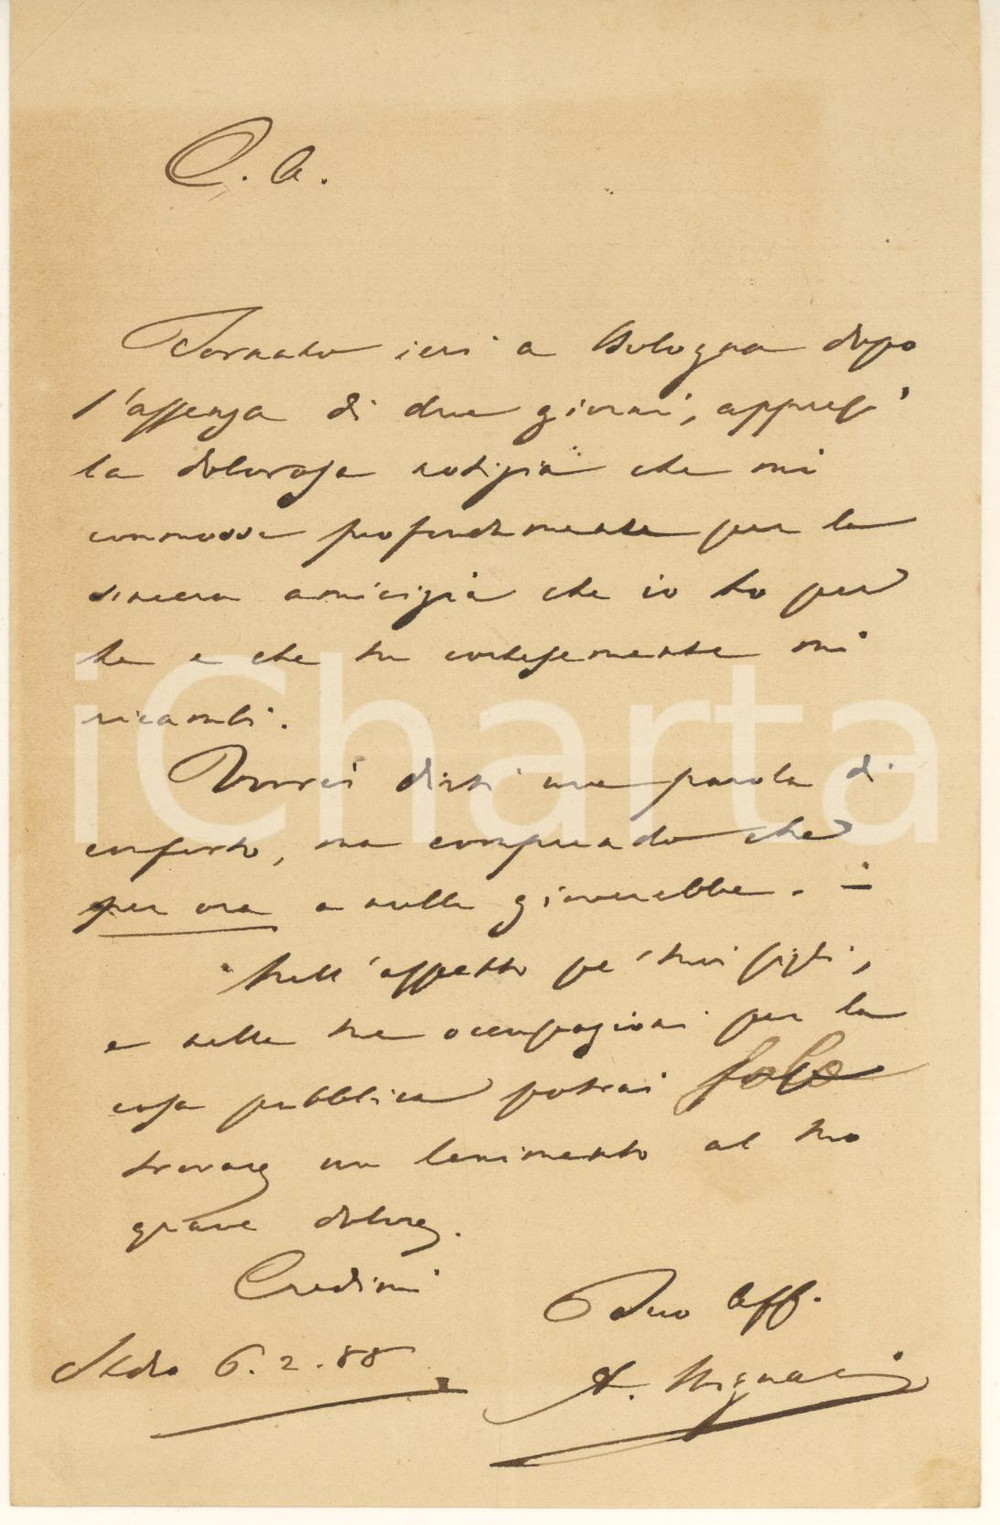 C. A.
Tornato ieri a Bologna dopo
l'assenza di due giorni, appresi
la dolorosa notizia che mi
commosse profondamente per la
sincera amicizia che io ho per
te e che tu cortesemente mi
ricambi.
Vorrei dirti una parola di
conforto, ma comprendo che
per ora a nulla gioverebbe. –
Nell'affetto pe' tuoi figli,
e nelle tue occupazioni per la
cosa pubblica potrai solo
trovare un lenimento al tuo
grave dolore.
Credimi
Tuo Aff.
6.2.88
A.
iCharta